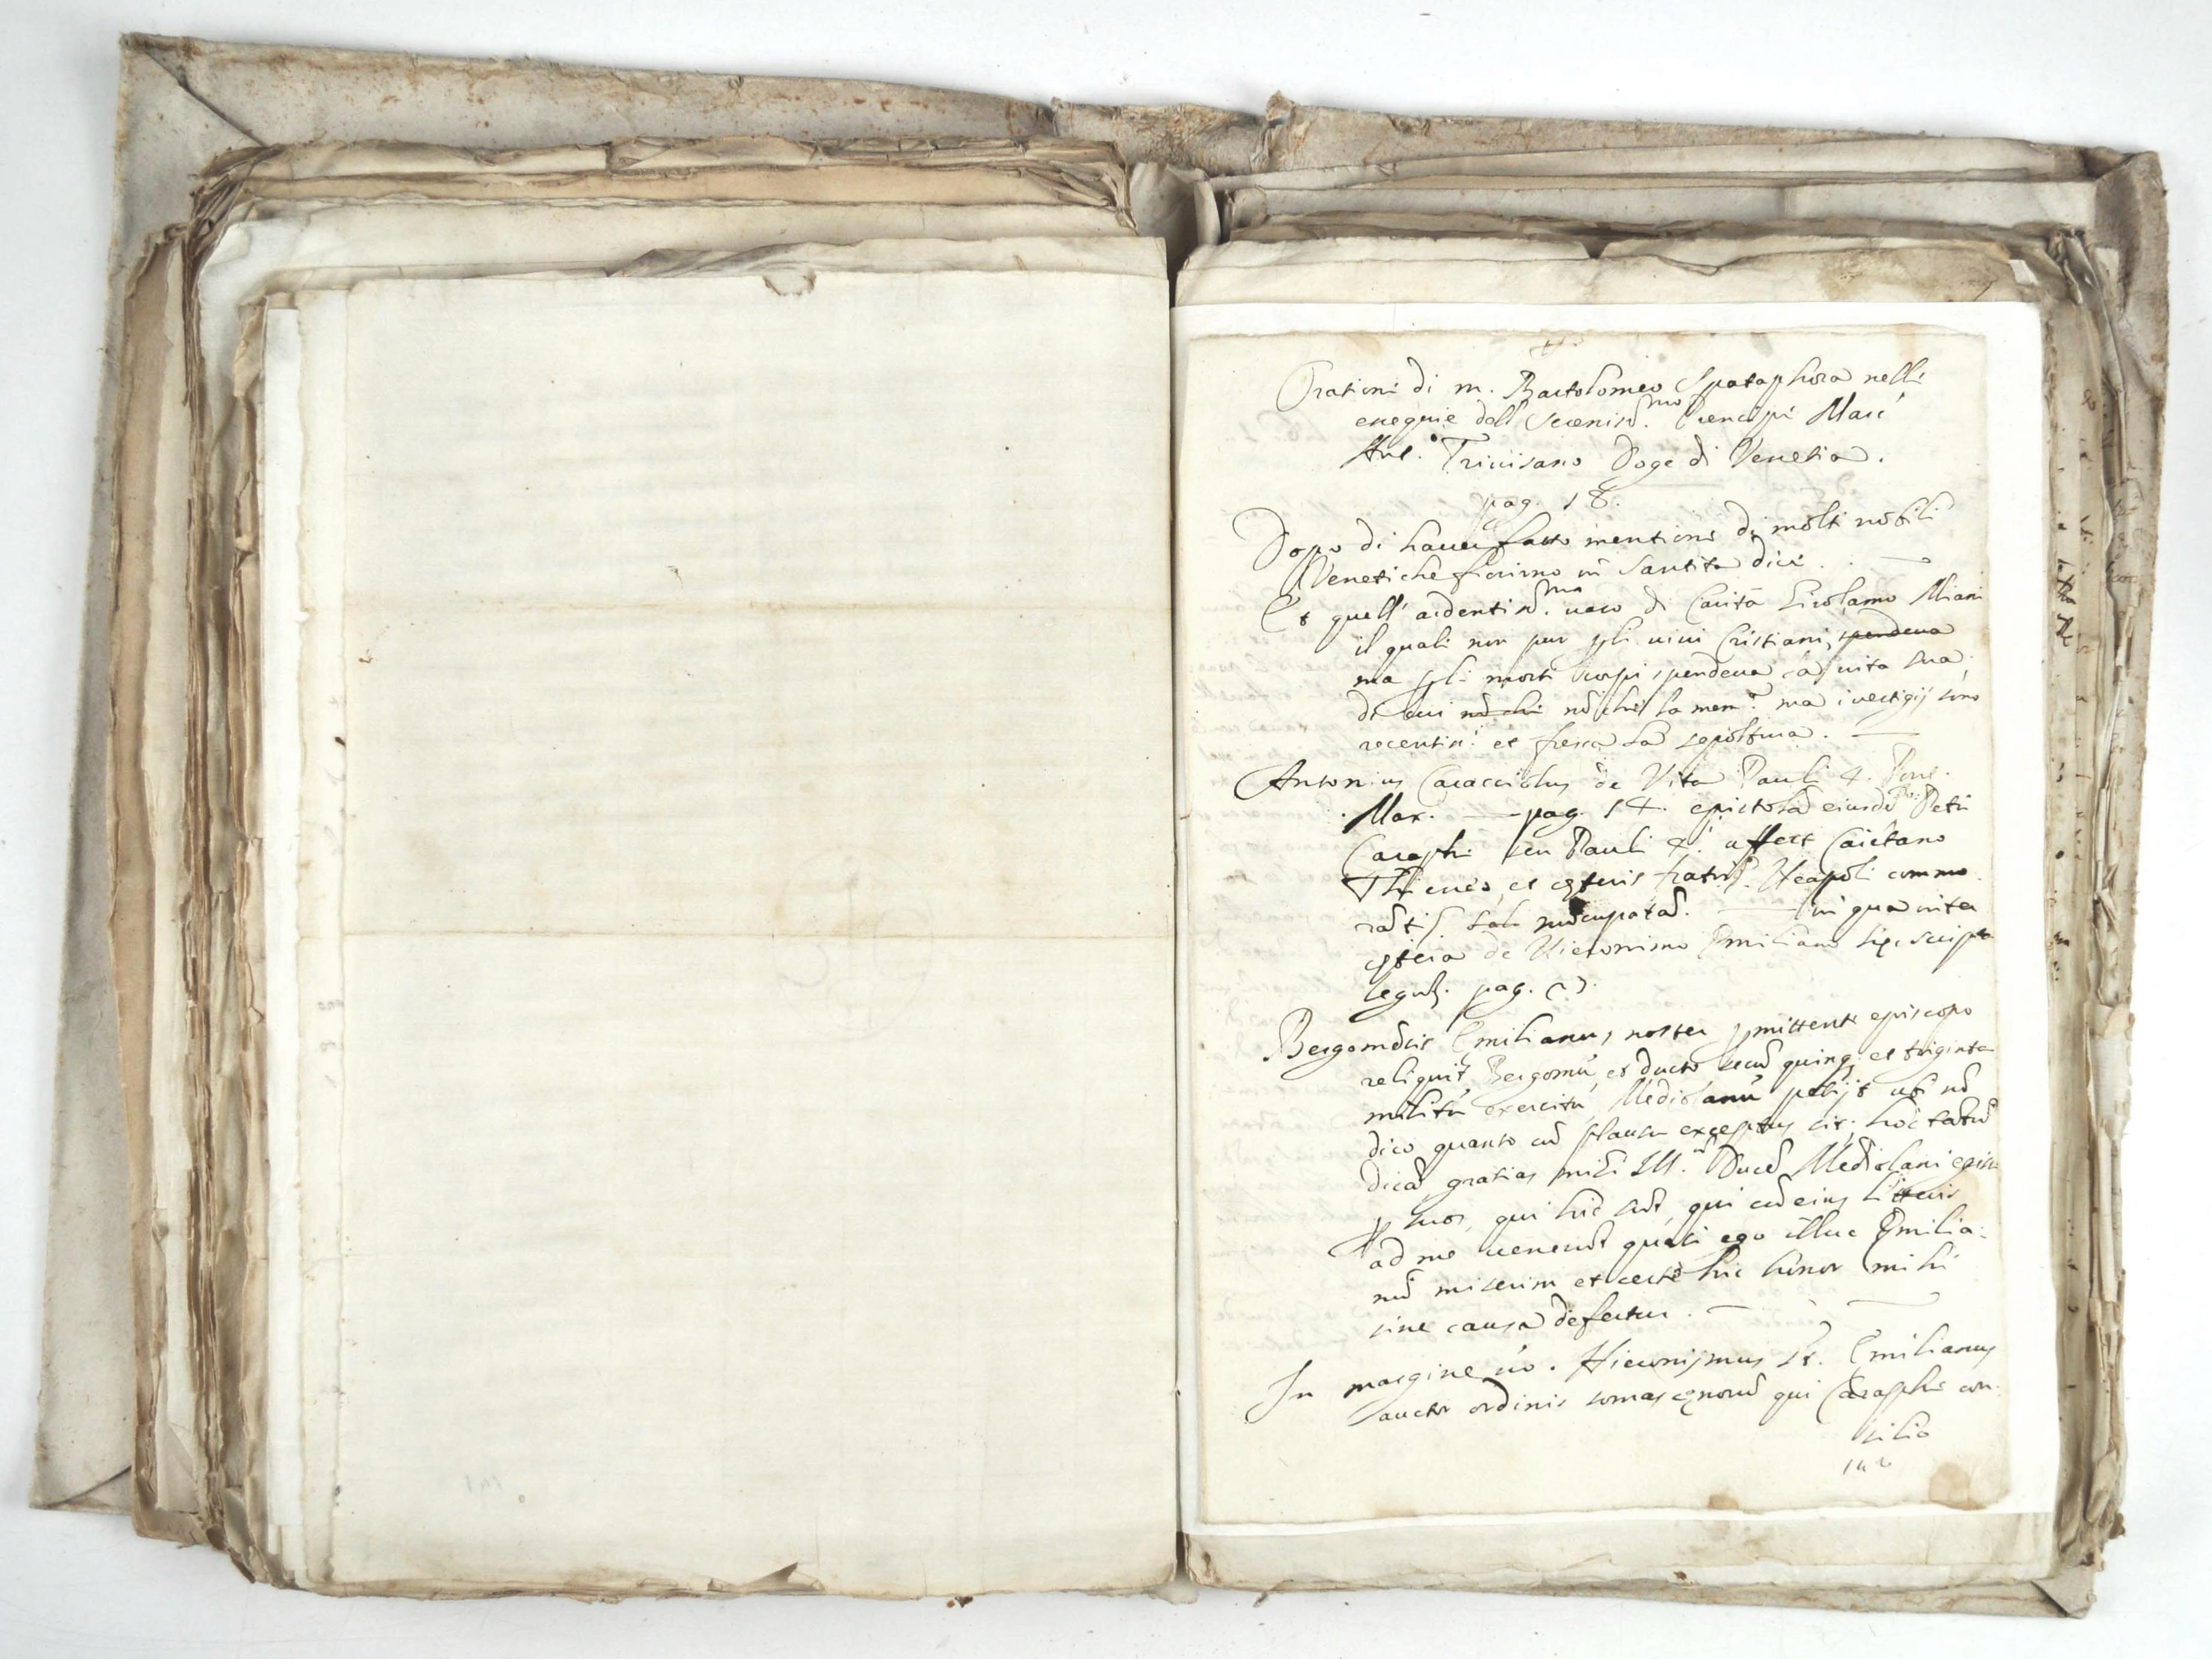 Orationi di m. Bartolomeo Spataphora nelli
exequie dell' Serenis.mo Prencipe Marc'
Ant.o Trivisano Doge di Venetia.
pag. 18.
Dopo di haver fatto mentione di molti nobili
Veneti che fiorirno in santità dice.
Et quell' ardentiss.ma vaso di Carità Girolamo Miani
il quali non pur p gli vivi Cristiani, spendeva
ma p gli morti corpi spendeva la vita sua
di cui nō chi nō chi la mem.a ma i vestigij sono
recentis.i et fresca la sepoltura.
Antonius Caracciolus de Vita Pauli 4. Pont.
Max. pag. 14. epistolā eiusdē Petri
Caraph. seu Pauli 4.i affert Caietano
Thieneo, et cęteris fratrib. Neapoli commo
rātib. nūcupatā. in qua inter
cętera de Hieronimo Emiliano sic scripta
leguntr. pag.
Bergomēsis Emilianus noster pmittente episcopo
reliquit Bergomū, et ducto secū quinq; et triginta
militū exercitu, Mediolanū petijt ubi nō
dico quanto cū plausu exceptus sit; hoc tātū
dicā gratias mihi Ill.m Ducē Mediolani egisse
p suos, qui hic sūt, qui cū eius litteris
ad me venerūt quasi ego illuc Emilia:
nū miserim et certe hic honor mihi
sine causa defertur.
In margine v̄o. Hieronijmus Emilianus
auctor ordinis somascęnorū qui Caraphę con
silio